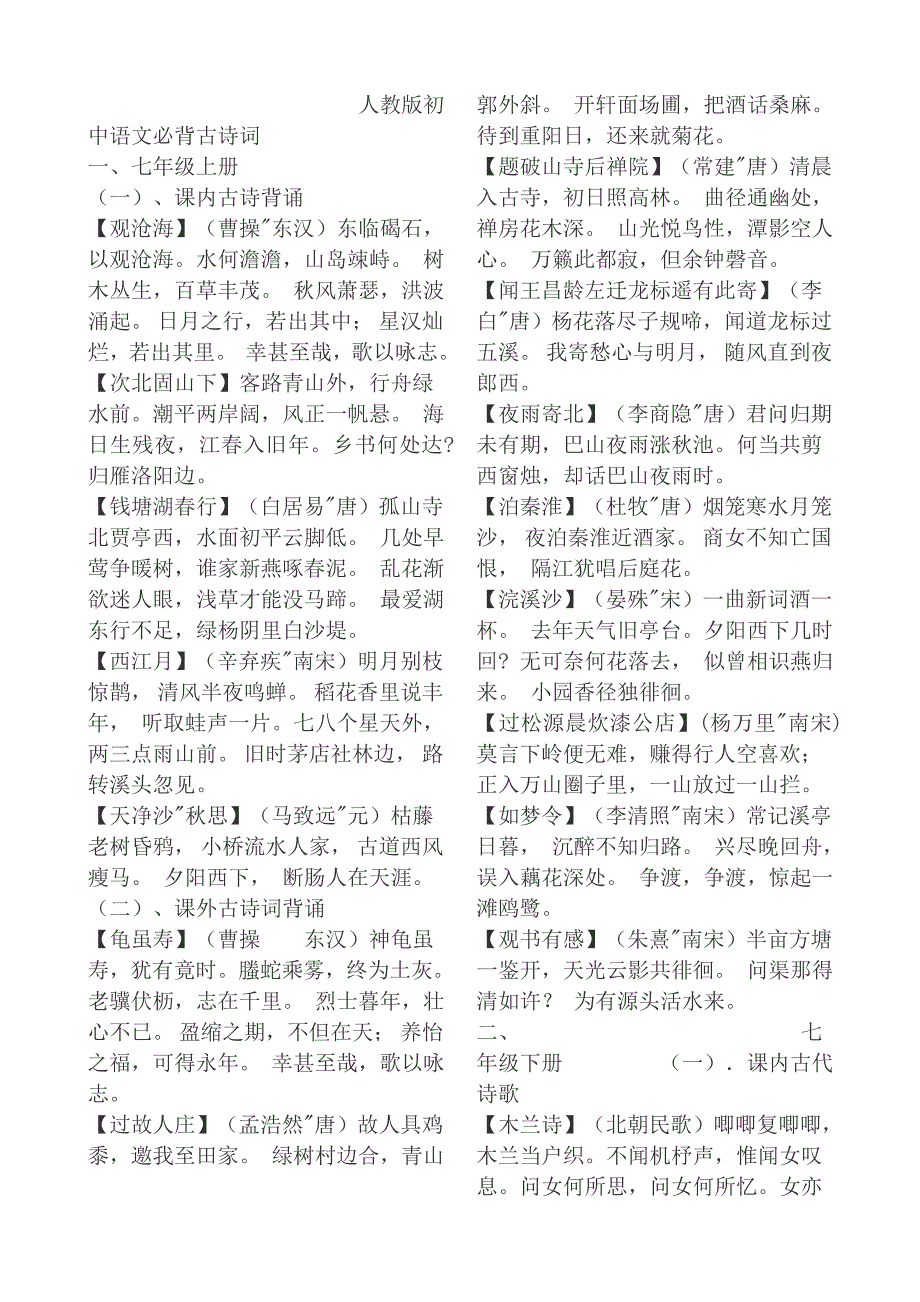 人教版初
中语文必背古诗词
一、七年级上册
（一）、课内古诗背诵
【观沧海】（曹操"东汉）东临碣石，
以观沧海。水何澹澹，山岛竦峙。 树
木丛生，百草丰茂。 秋风萧瑟，洪波
涌起。 日月之行，若出其中； 星汉灿
烂，若出其里。 幸甚至哉，歌以咏志。
【次北固山下】客路青山外，行舟绿
水前。潮平两岸阔，风正一帆悬。 海
日生残夜，江春入旧年。乡书何处达?
归雁洛阳边。
【钱塘湖春行】（白居易"唐）孤山寺
北贾亭西，水面初平云脚低。 几处早
莺争暖树，谁家新燕啄春泥。 乱花渐
欲迷人眼，浅草才能没马蹄。 最爱湖
东行不足，绿杨阴里白沙堤。
【西江月】（辛弃疾"南宋）明月别枝
惊鹊， 清风半夜鸣蝉。 稻花香里说丰
年， 听取蛙声一片。七八个星天外，
两三点雨山前。 旧时茅店社林边， 路
转溪头忽见。
【天净沙"秋思】（马致远"元）枯藤
老树昏鸦， 小桥流水人家， 古道西风
瘦马。 夕阳西下， 断肠人在天涯。
（二）、课外古诗词背诵
【龟虽寿】（曹操 东汉）神龟虽
寿，犹有竟时。螣蛇乘雾，终为土灰。
老骥伏枥，志在千里。 烈士暮年，壮
心不已。 盈缩之期，不但在天； 养怡
之福，可得永年。 幸甚至哉，歌以咏
志。
【过故人庄】（孟浩然"唐）故人具鸡
黍，邀我至田家。 绿树村边合，青山
郭外斜。 开轩面场圃，把酒话桑麻。
待到重阳日，还来就菊花。
【题破山寺后禅院】（常建"唐）清晨
入古寺，初日照高林。 曲径通幽处，
禅房花木深。 山光悦鸟性，潭影空人
心。 万籁此都寂，但余钟磬音。
【闻王昌龄左迁龙标遥有此寄】（李
白"唐）杨花落尽子规啼，闻道龙标过
五溪。 我寄愁心与明月， 随风直到夜
郎西。
【夜雨寄北】（李商隐"唐）君问归期
未有期，巴山夜雨涨秋池。何当共剪
西窗烛，却话巴山夜雨时。
【泊秦淮】（杜牧"唐）烟笼寒水月笼
沙， 夜泊秦淮近酒家。 商女不知亡国
恨， 隔江犹唱后庭花。
【浣溪沙】（晏殊"宋）一曲新词酒一
杯。 去年天气旧亭台。夕阳西下几时
回? 无可奈何花落去， 似曾相识燕归
来。 小园香径独徘徊。
【过松源晨炊漆公店】(杨万里"南宋)
莫言下岭便无难，赚得行人空喜欢；
正入万山圈子里，一山放过一山拦。
【如梦令】（李清照"南宋）常记溪亭
日暮， 沉醉不知归路。 兴尽晚回舟，
误入藕花深处。 争渡，争渡，惊起一
滩鸥鹭。
【观书有感】（朱熹"南宋）半亩方塘
一鉴开，天光云影共徘徊。 问渠那得
清如许？ 为有源头活水来。
二、 七
年级下册 （一）．课内古代
诗歌
【木兰诗】（北朝民歌）唧唧复唧唧，
木兰当户织。不闻机杼声，惟闻女叹
息。问女何所思，问女何所忆。女亦